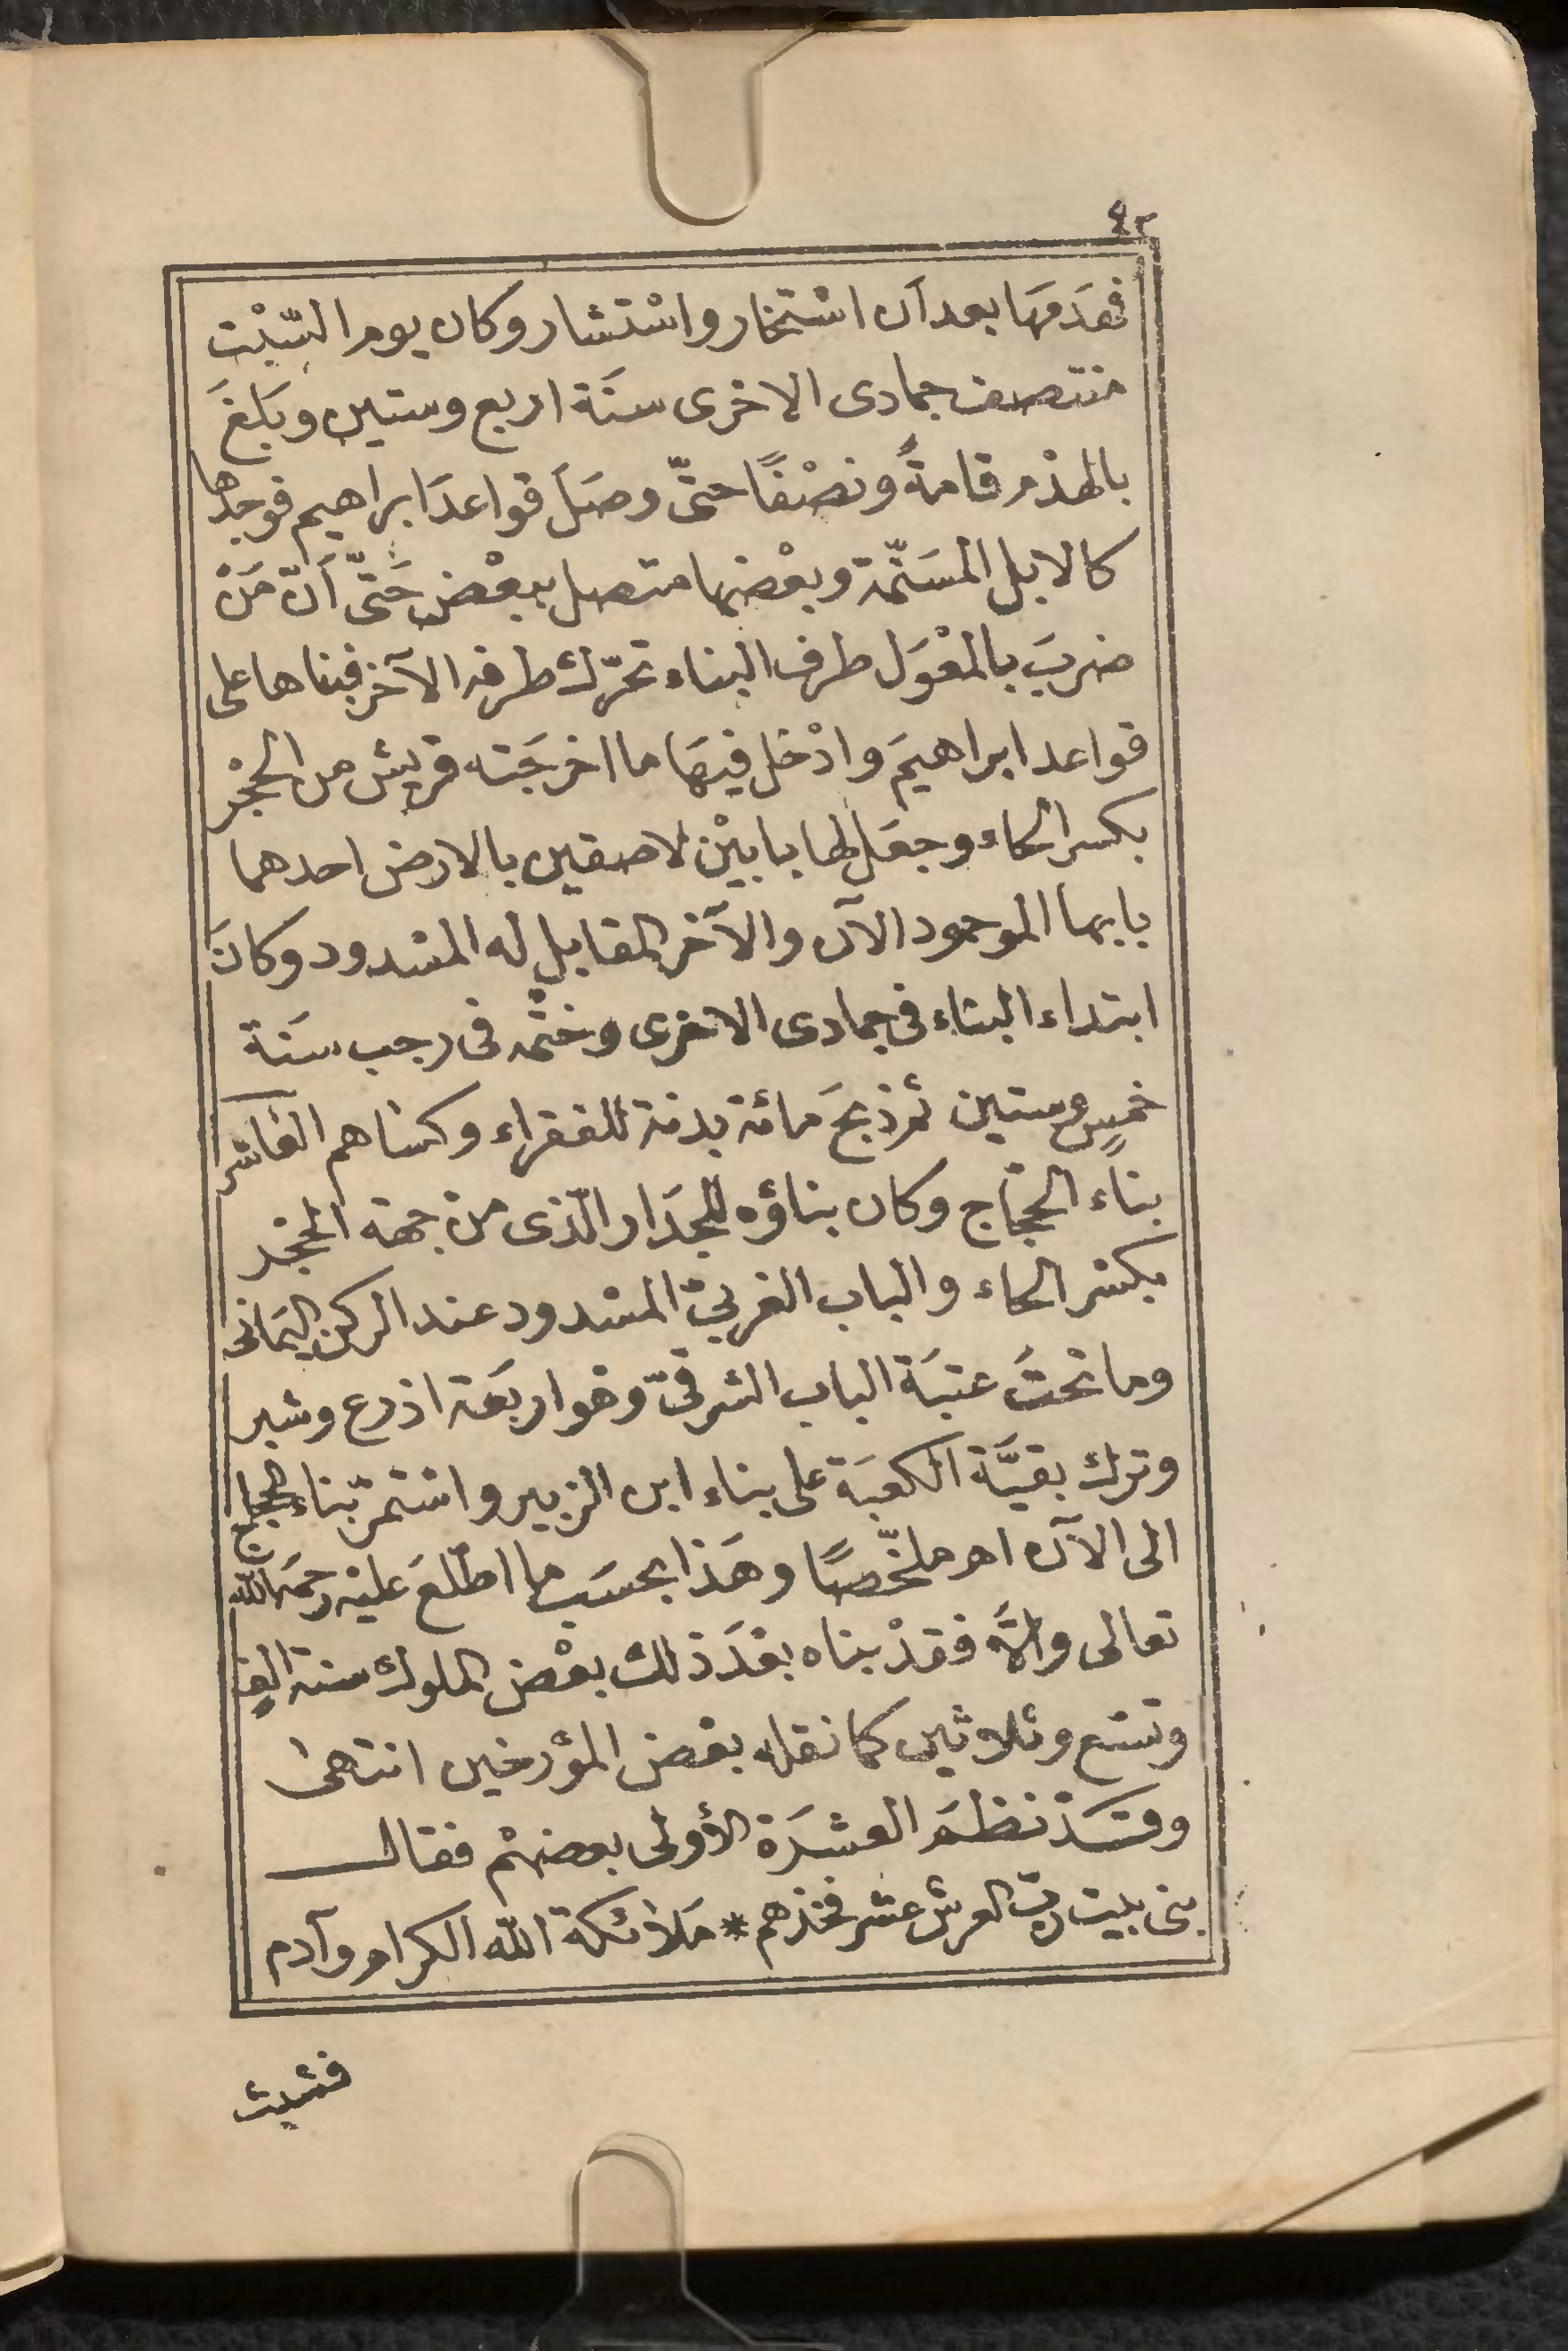 ٤٢
فهَدَمَهَا بعد اَن اسْتخار واسْتشار وكان يوم السّبْت
منتصف جمادى الاخرى سنَة اربع وستين وبَلغَ
بالهدْم قامةً ونصْفًا حتّى وصَلَ قواعدَ ابراهيم فوجدها
كالابل المسَنّمة وبعْضها متصل ببعْض حَتّى اَنّ مَنْ
ضربَ بالمعْوَل طرف البناء تحرّك طرفه الآخر فبناها على
قواعد ابراهيمَ وادْخل فيهَا ما اخرجَته قريش من الحجْر
بكسر الحاء وجعَل لها بابيْن لاصقين بالارض احدهما
بابها الموجود الآن والآخر المقابل له المسْدود وكانَ
ابتداء البناء فى جمادى الاخرى وختْمه فى رجب سَنة
خمسٍ وستين ثم ذبحَ مائة بدنة للفقراء وكساهم العاشر
بناء الحجّاج وكان بناؤه للجدَار الّذى من جهة الحجْر
بكسْر الحاء والباب الغربىّ المسْدود عند الركن اليمَانى
وما تحتَ عتبَة الباب الشرقىّ وهو اربعَة اذرع وشبر
وترك بقيَّة الكعبَة على بناء ابن الزبير واسْتمرّ بناء الحجاج
الى الآن اهـ ملخّصًا وهَذا بحسَب ما اطّلعَ عليْه رحمَه الله
تعالى والّا فقدْ بناه بعْدَ ذلك بعْض الملوك سنة الفٍ
وتسْع وثلاثين كما نقله بعْض المؤرخين انتهى
وقَدْ نظمَ العشرَة الأولى بعضهمْ فقال
بنى بيت ربّ العرش عشر فخذهم * مَلائكة الله الكرام وآدم
فشيث